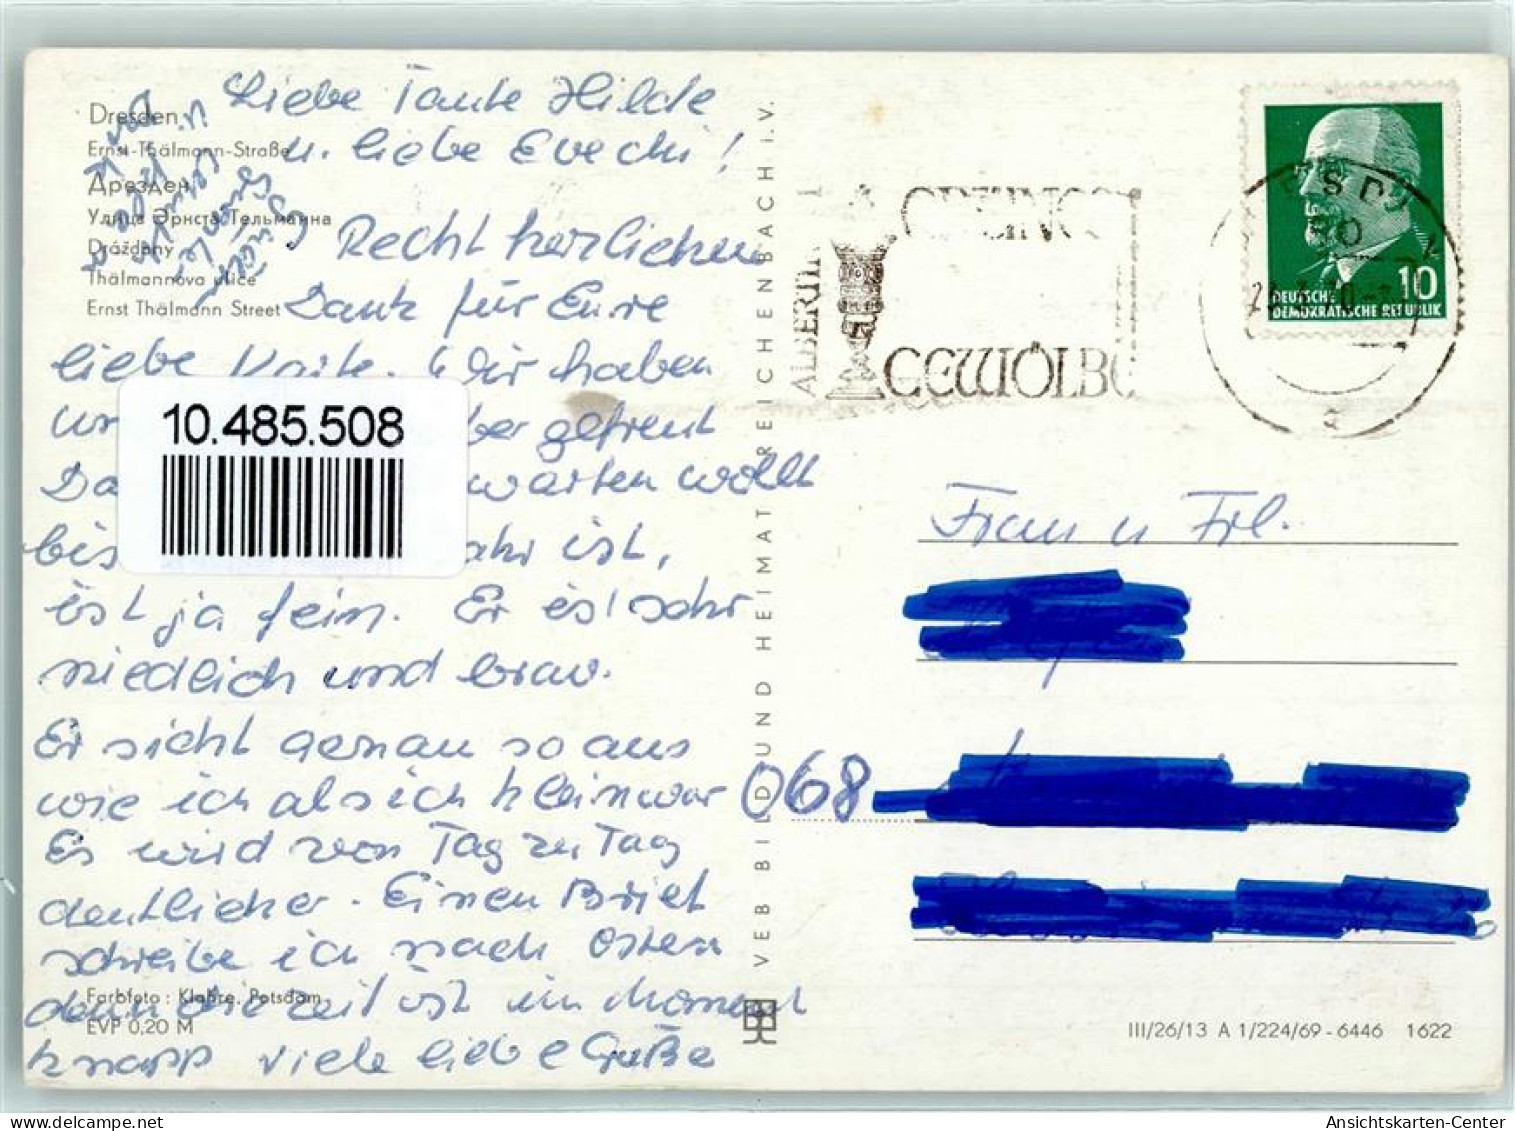 Dresden
Ernst-Thälmann-Straße
Дрезден
Улица Эрнста Тельманна
Drážďany
Thälmannova ulice
Ernst Thälmann Street
Liebe Tante Hilde
u. liebe Evechi!
Recht herzlichen
Dank für Eure
liebe Karte. Wir haben
gefreut
warten wollt
bis ist,
ist ja fein. Er ist sehr
niedlich und brav.
Er sieht genau so aus
wie ich als ich klein war
Es wird von Tag zu Tag
deutlicher. Einen Brief
schreibe ich nach Ostern
denn die Zeit ist im Moment
knapp viele liebe Grüße
Farbfoto: Klahre, Potsdam
EVP 0,20 M
10.485.508
VEB BILD UND HEIMAT REICHENBACH i. V.
GRÜNES
GEWÖLBE
10
DEUTSCHE
DEMOKRATISCHE REPUBLIK
Frau u Frl.
068
III/26/13 A 1/224/69 - 6446 1622
Ansichtskarten-Center